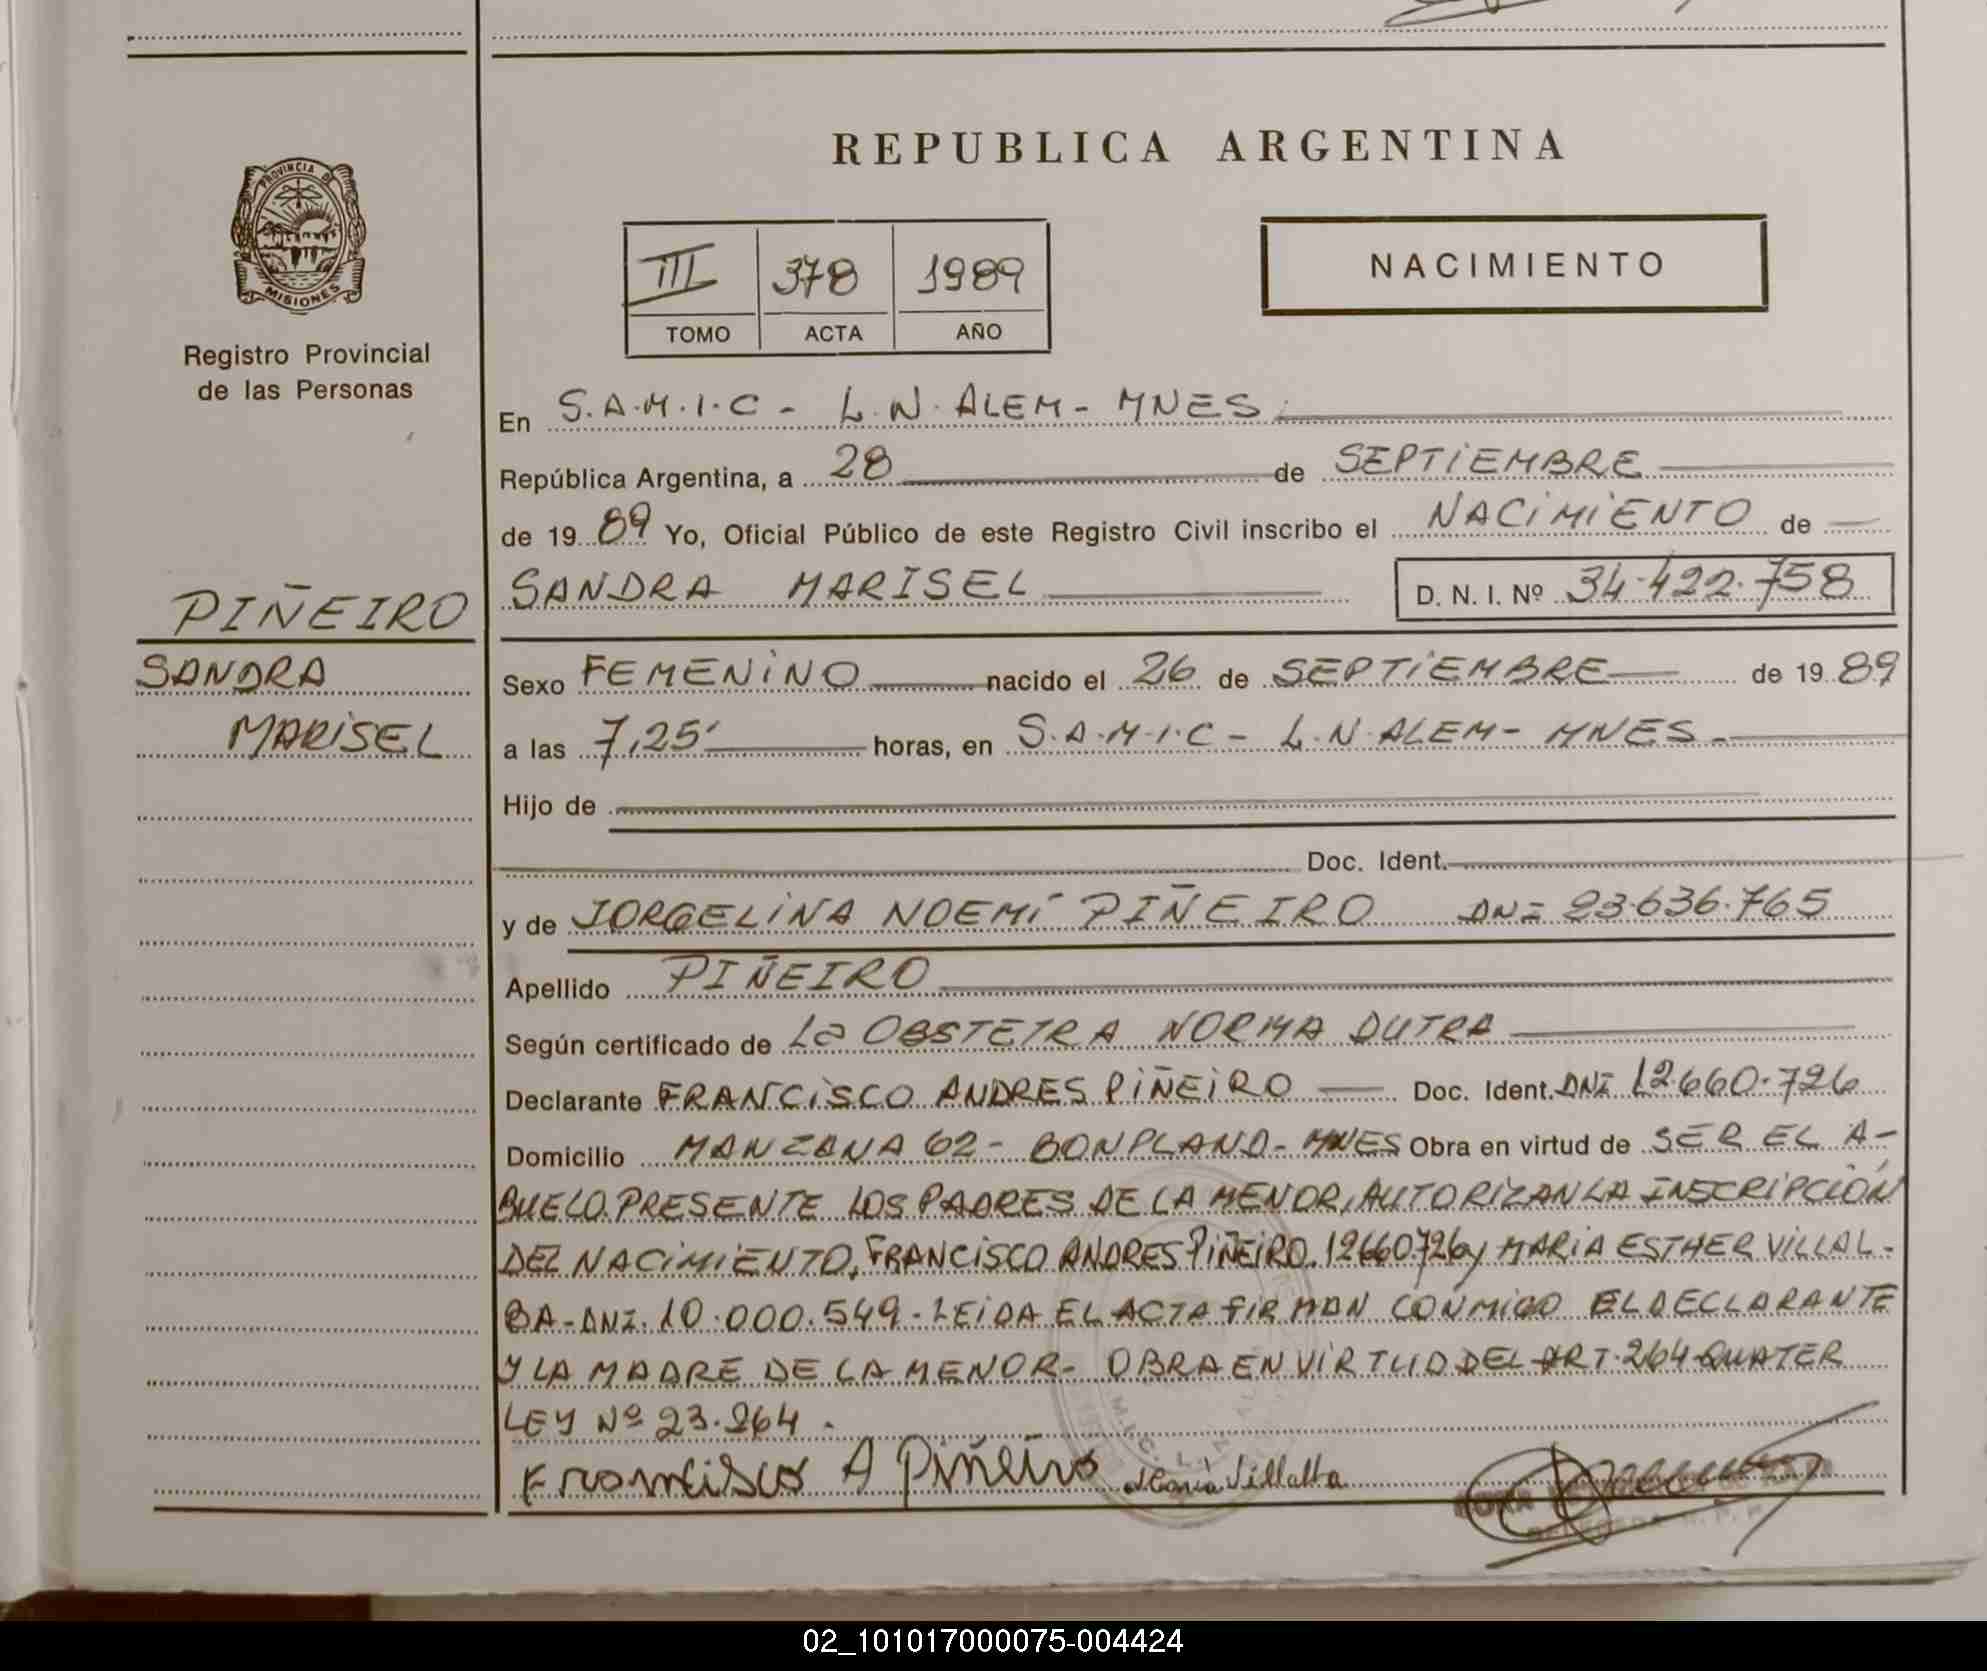 REPUBLICA ARGENTINA
PROVINCIA DE
MISIONES
Registro Provincial
de las Personas
III 378 1989
TOMO ACTA AÑO
NACIMIENTO
En S.A.M.I.C - L.N. ALEM - MNES
República Argentina, a 28 de SEPTIEMBRE
de 1989 Yo, Oficial Público de este Registro Civil inscribo el NACIMIENTO de
SANDRA MARISEL D. N. I. Nº 34.422.758
PIÑEIRO
SANDRA
MARISEL
Sexo FEMENINO nacido el 26 de SEPTIEMBRE de 1989
a las 7,25' horas, en S.A.M.I.C - L.N. ALEM - MNES -
Hijo de
Doc. Ident.
y de JORGELINA NOEMÍ PIÑEIRO DNI 23.636.765
Apellido PIÑEIRO
Según certificado de La OBSTETRA NORMA DUTRA
Declarante FRANCISCO ANDRES PIÑEIRO Doc. Ident. DNI 12.660.726
Domicilio MANZANA 62 - BONPLAND - MNES Obra en virtud de SER EL A-
BUELO. PRESENTE LOS PADRES DE LA MENOR, AUTORIZAN LA INSCRIPCIÓN
DEL NACIMIENTO, FRANCISCO ANDRES PIÑEIRO. 12660726 y MARIA ESTHER VILLAL-
BA - DNI. 10.000.549 - LEIDA EL ACTA FIRMAN CONMIGO EL DECLARANTE
Y LA MADRE DE LA MENOR - OBRA EN VIRTUD DEL ART. 264 QUATER
LEY Nº 23.264.
Francisco A Piñeiro María Villalba
02_101017000075-004424